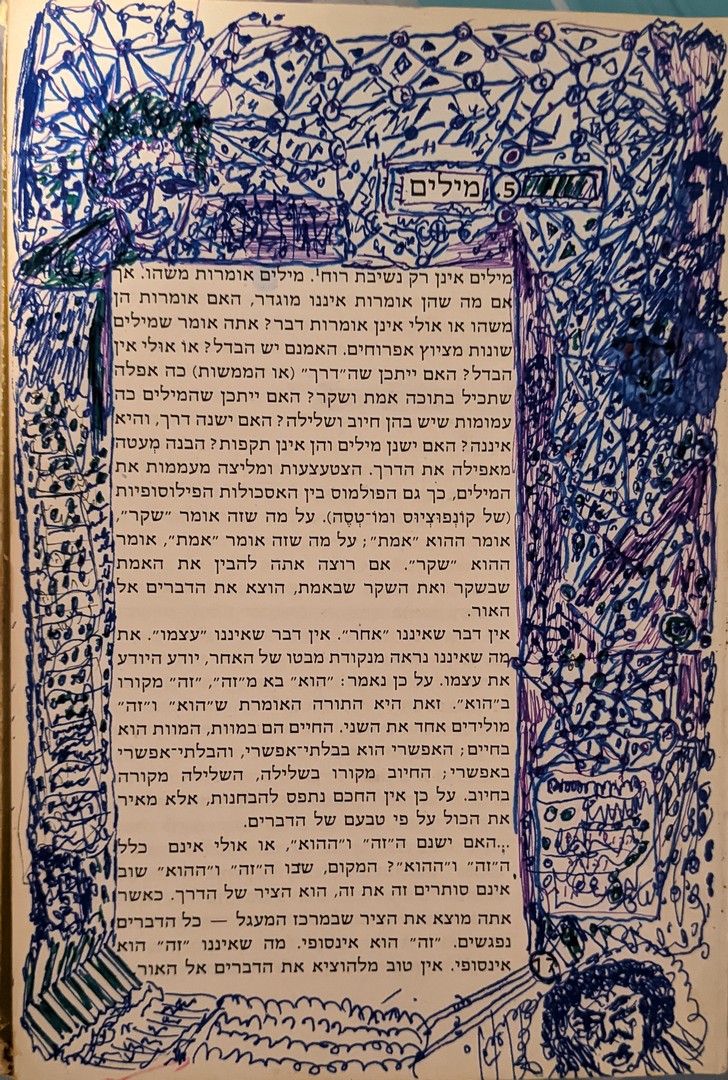 5. מילים
מילים אינן רק נשיבת רוחי. מילים אומרות משהו. אך
אם מה שהן אומרות איננו מוגדר, האם אומרות הן
משהו או אולי אינן אומרות דבר? אתה אומר שמילים
שונות מציוץ אפרוחים. האמנם יש הבדל? או אולי אין
הבדל? האם ייתכן שה״דרך״ (או הממשות) כה אפלה
שתכיל בתוכה אמת ושקר? האם ייתכן שהמילים כה
עמומות שיש בהן חיוב ושלילה? האם ישנה דרך, והיא
איננה? האם ישנן מילים והן אינן תקפות? הבנה מְעטה
מאפילה את הדרך. הצטעצעות ומליצה מעממות את
המילים, כך גם הפולמוס בין האסכולות הפילוסופיות
(של קוֹנְפוּצְיוּס ומוֹ־טְסֶה). על מה שזה אומר ״שקר״,
אומר ההוא ״אמת״; על מה שזה אומר ״אמת״, אומר
ההוא ״שקר״. אם רוצה אתה להבין את האמת
שבשקר ואת השקר שבאמת, הוצא את הדברים אל
האור.
אין דבר שאיננו ״אחר״. אין דבר שאיננו ״עצמו״. את
מה שאיננו נראה מנקודת מבטו של האחר, יודע היודע
את עצמו. על כן נאמר: ״הוא״ בא מ״זה״, ״זה״ מקורו
ב״הוא״. זאת היא התורה האומרת ש״הוא״ ו״זה״
מולידים אחד את השני. החיים הם במוות, המוות הוא
בחיים; האפשרי הוא בבלתי־אפשרי, והבלתי־אפשרי
באפשרי; החיוב מקורו בשלילה, השלילה מקורה
בחיוב. על כן אין החכם נתפס להבחנות, אלא מאיר
את הכול על פי טבעם של הדברים.
...האם ישנם ה״זה״ ו״ההוא״, או אולי אינם כלל
ה״זה״ ו״ההוא״? המקום, שבו ה״זה״ ו״ההוא״ שוב
אינם סותרים זה את זה, הוא הציר של הדרך. כאשר
אתה מוצא את הציר שבמרכז המעגל — כל הדברים
נפגשים. ״זה״ הוא אינסופי. מה שאיננו ״זה״ הוא
אינסופי. אין טוב מלהוציא את הדברים אל האור.
17